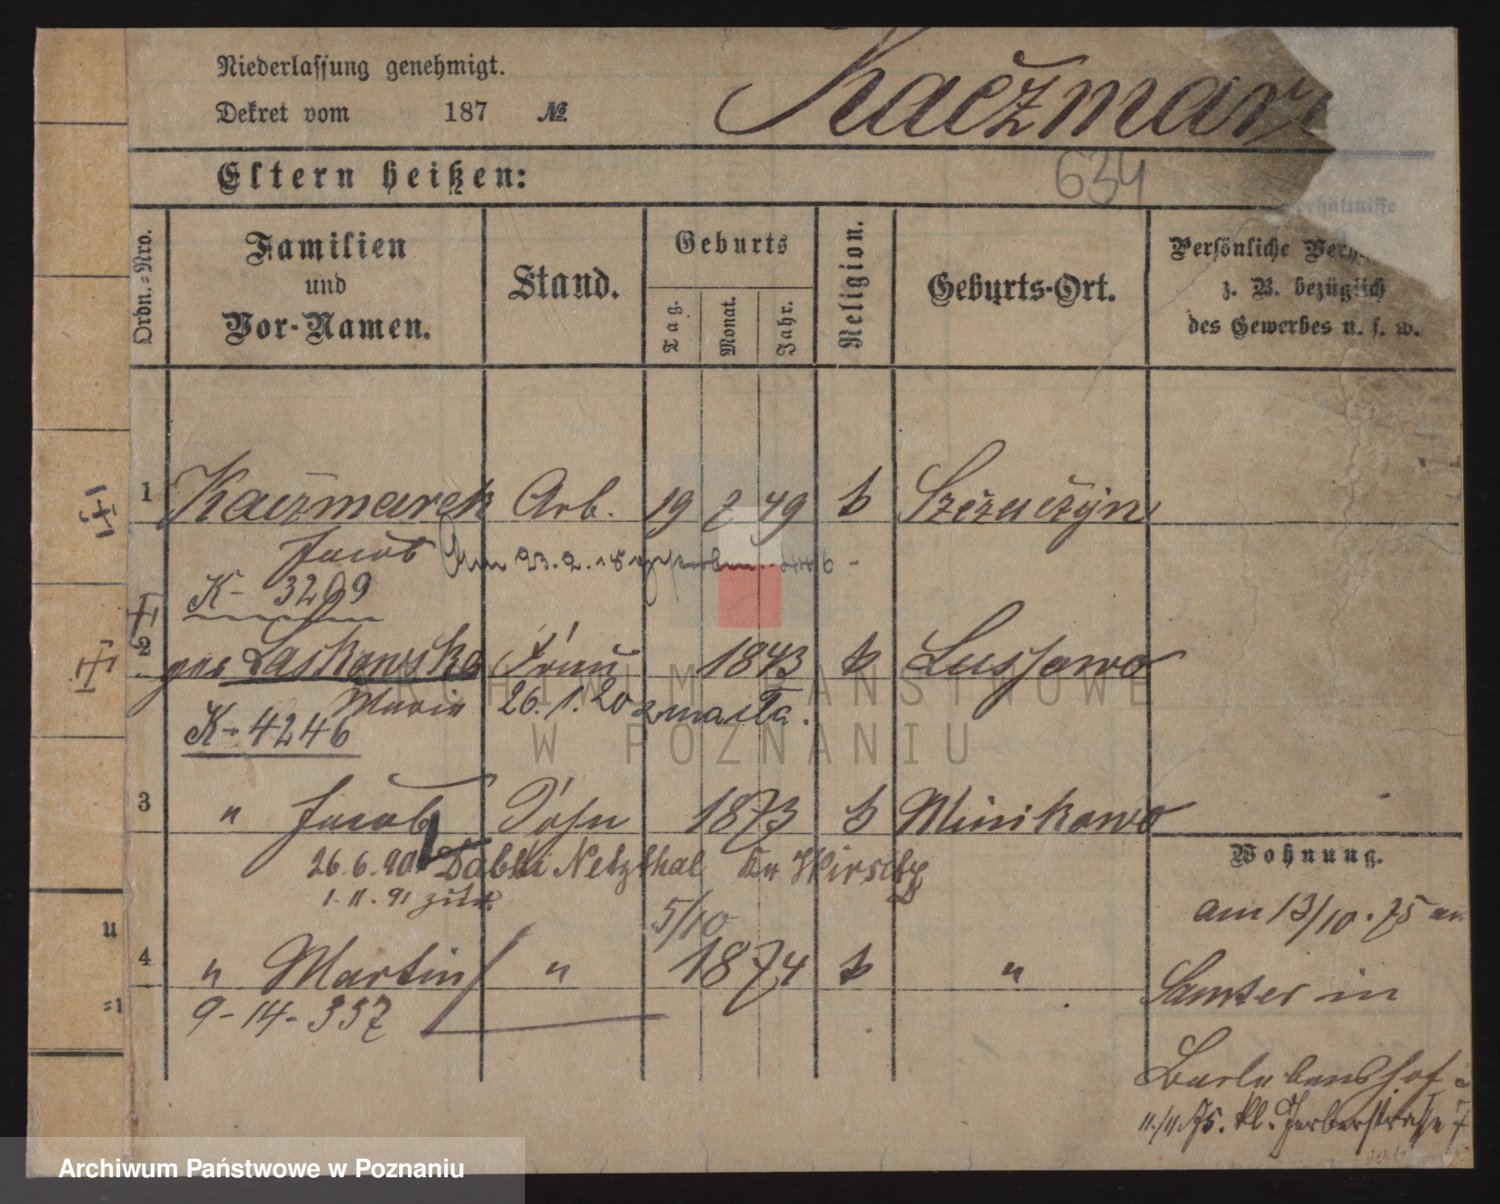 Niederlassung genehmigt.
Dekret vom 187 №
Kaczmar
634
Eltern heißen:
Ordn.-Nro.
Familien
und
Vor-Namen.
Stand.
Geburts
Tag.
Monat.
Jahr.
Religion.
Geburts-Ort.
Persönliche
z. B. bezüglich
des Gewerbes u. s. w.
1 Kaczmarek Arb. 19 2 49 k Szczuczyn
Jacob
K- 3299
2 geb Laskowska Frau 1843 k Lussowo
Marie 26.1.20 zmarła.
K-4246
3 " Jacob Sohn 1873 k Minikowo
26.6.90 Netzthal Kr Wirsitz
1.11.91 zurk
5/10
4 " Martin " 1874 k "
9-14-337
Wohnung.
am 13/10.75 an
Samter in
Barlebenshof
11/11.75. kl. Gerberstraße 7
u
ARCHIWUM PAŃSTWOWE
W POZNANIU
Archiwum Państwowe w Poznaniu